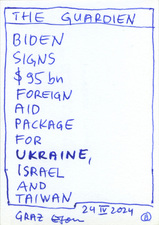 THE GUARDIEN
BIDEN
SIGNS
$95 bn
FOREIGN
AID
PACKAGE
FOR
UKRAINE,
ISRAEL
AND
TAIWAN
24 IV 2024
GRAZ